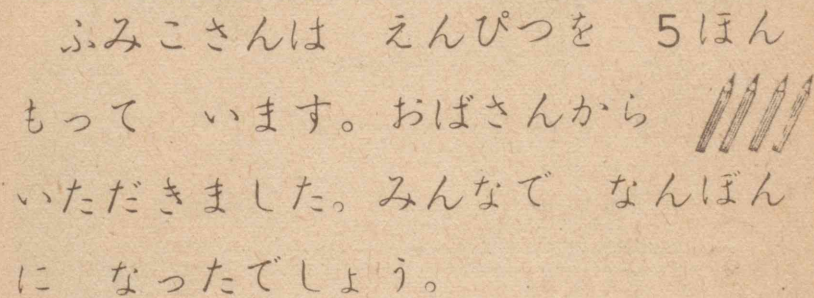 ふみこさんは　えんぴつを　5ほん
もって　います。おばさんから
いただきました。みんなで　なんぼん
に　なったでしょう。